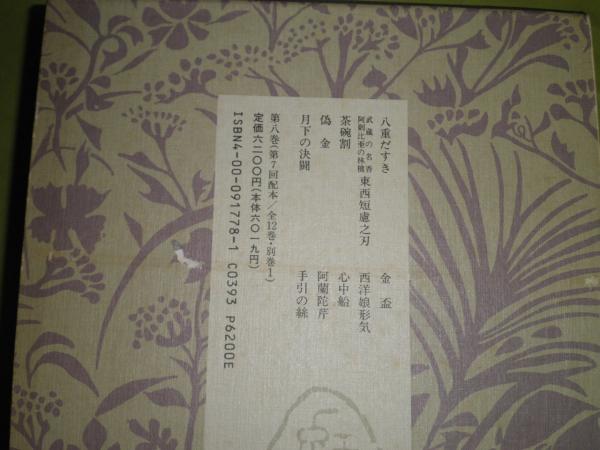 八重だすき　金盃
武蔵の名香
阿剌比亜の林檎
東西短慮之刃　西洋娘形気
茶碗割　心中船
偽金　阿蘭陀芹
月下の決闘　手引の絲
第八巻(第7回配本/全12巻・別巻1)
定価六二〇〇円(本体六〇一九円)
ISBN4-00-091778-1 C0393 P6200E